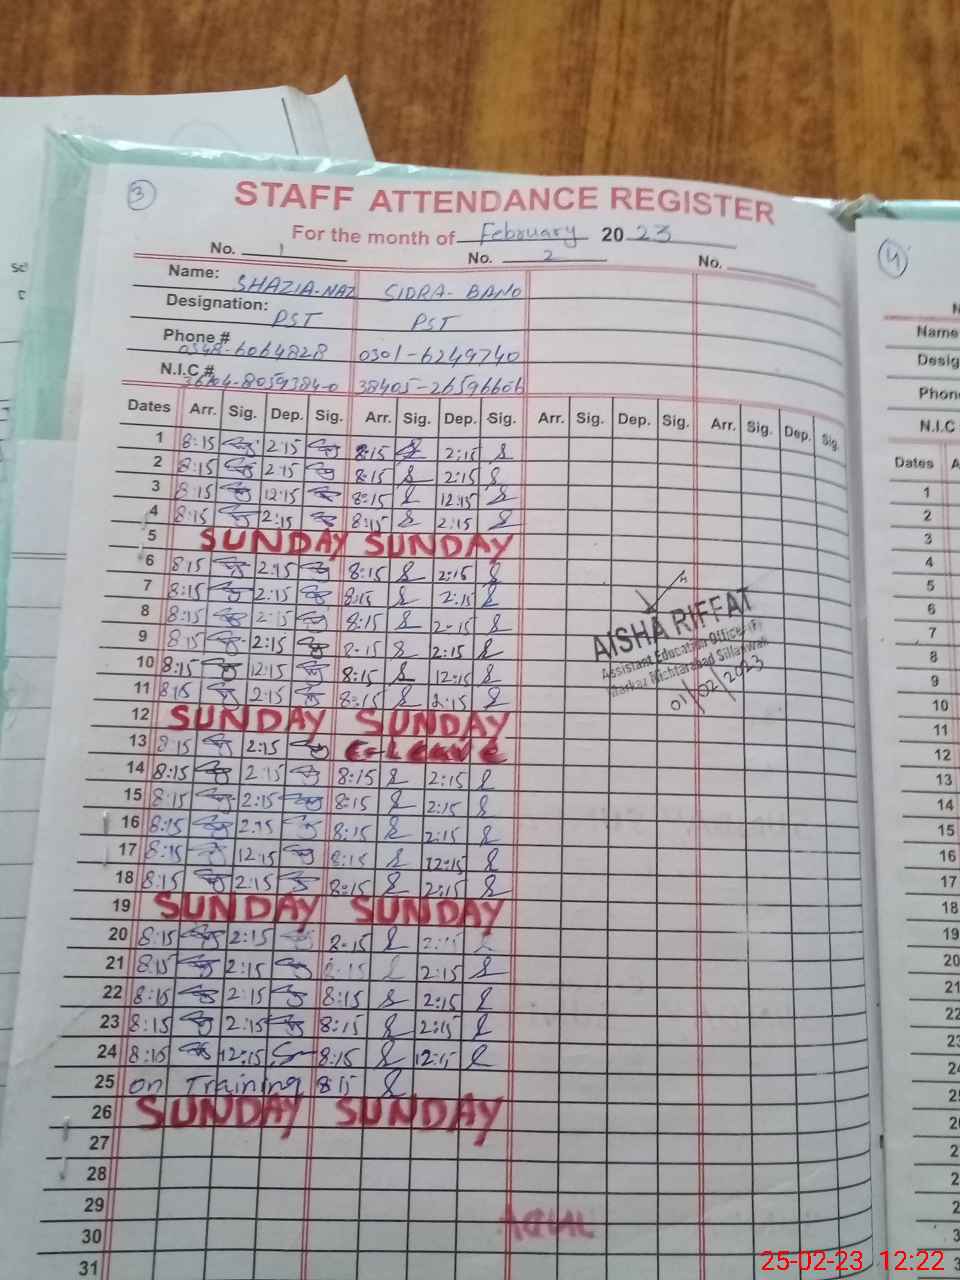 3
STAFF ATTENDANCE REGISTER
For the month of February 2023
No. 1 No. 2 No.
Name: SHAZIA-NAZ SIDRA-BANO
Designation: PST PST
Phone # 0348-6064828 0301-6249740
N.I.C.# 38405-26596606
Dates Arr. Sig. Dep. Sig. Arr. Sig. Dep. Sig. Arr. Sig. Dep. Sig. Arr. Sig. Dep. Sig.
1 8:15 2:15 8:15 2:15
2 8:15 2:15 8:15 2:15
3 8:15 12:15 8:15 12:15
4 8:15 2:15 8:15 2:15
5 SUNDAY SUNDAY
6 8:15 2:15 8:15 2:15
7 8:15 2:15 8:15 2:15
8 8:15 2:15 8:15 2:15
9 8:15 2:15 8:15 2:15
10 8:15 12:15 8:15 12:15
11 8:15 2:15 8:15 2:15
12 SUNDAY SUNDAY
13 8:15 2:15 C-Leave
14 8:15 2:15 8:15 2:15
15 8:15 2:15 8:15 2:15
16 8:15 2:15 8:15 2:15
17 8:15 12:15 8:15 12:15
18 8:15 2:15 8:15 2:15
19 SUNDAY SUNDAY
20 8:15 2:15 8:15 2:15
21 8:15 2:15 8:15 2:15
22 8:15 2:15 8:15 2:15
23 8:15 2:15 8:15 2:15
24 8:15 12:15 8:15 12:15
25 on Training 8:15
26 SUNDAY SUNDAY
27
28
29
30
31
AISHA RIFFAT
Assistant Education Officer (F)
Markaz
01/02/2023
4
Name
Desig
Phon
N.I.C
Dates
1
2
3
4
5
6
7
8
9
10
11
12
13
14
15
16
17
18
19
20
21
22
23
24
25-02-23 12:22